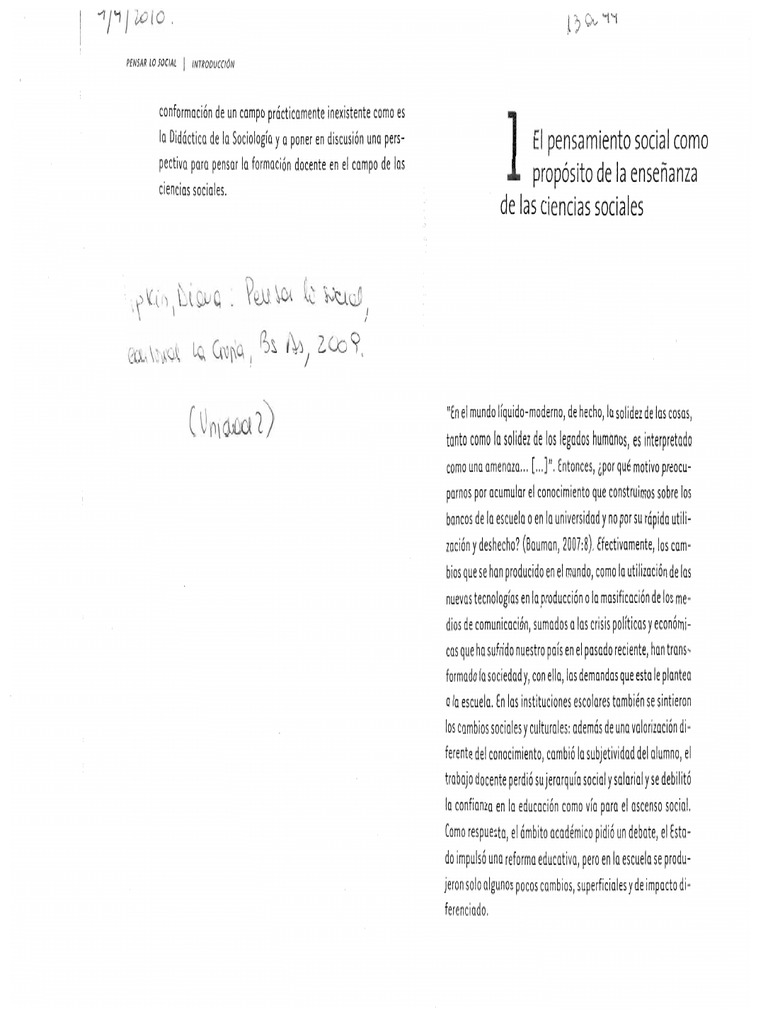 1/4/2010.
13 a 44
PENSAR LO SOCIAL | INTRODUCCIÓN
conformación de un campo prácticamente inexistente como es
la Didáctica de la Sociología y a poner en discusión una pers-
pectiva para pensar la formación docente en el campo de las
ciencias sociales.
Diana: Pensar lo social,
editorial La Crujía, Bs As, 2009.
(Unidad 2)
1 El pensamiento social como
propósito de la enseñanza
de las ciencias sociales
"En el mundo líquido-moderno, de hecho, la solidez de las cosas,
tanto como la solidez de los legados humanos, es interpretado
como una amenaza... [...]". Entonces, ¿por qué motivo preocu-
parnos por acumular el conocimiento que construimos sobre los
bancos de la escuela o en la universidad y no por su rápida utili-
zación y deshecho? (Bauman, 2007:8). Efectivamente, los cam-
bios que se han producido en el mundo, como la utilización de las
nuevas tecnologías en la producción o la masificación de los me-
dios de comunicación, sumados a las crisis políticas y económi-
cas que ha sufrido nuestro país en el pasado reciente, han trans-
formado la sociedad y, con ella, las demandas que esta le plantea
a la escuela. En las instituciones escolares también se sintieron
los cambios sociales y culturales: además de una valorización di-
ferente del conocimiento, cambió la subjetividad del alumno, el
trabajo docente perdió su jerarquía social y salarial y se debilitó
la confianza en la educación como vía para el ascenso social.
Como respuesta, el ámbito académico pidió un debate, el Esta-
do impulsó una reforma educativa, pero en la escuela se produ-
jeron solo algunos pocos cambios, superficiales y de impacto di-
ferenciado.